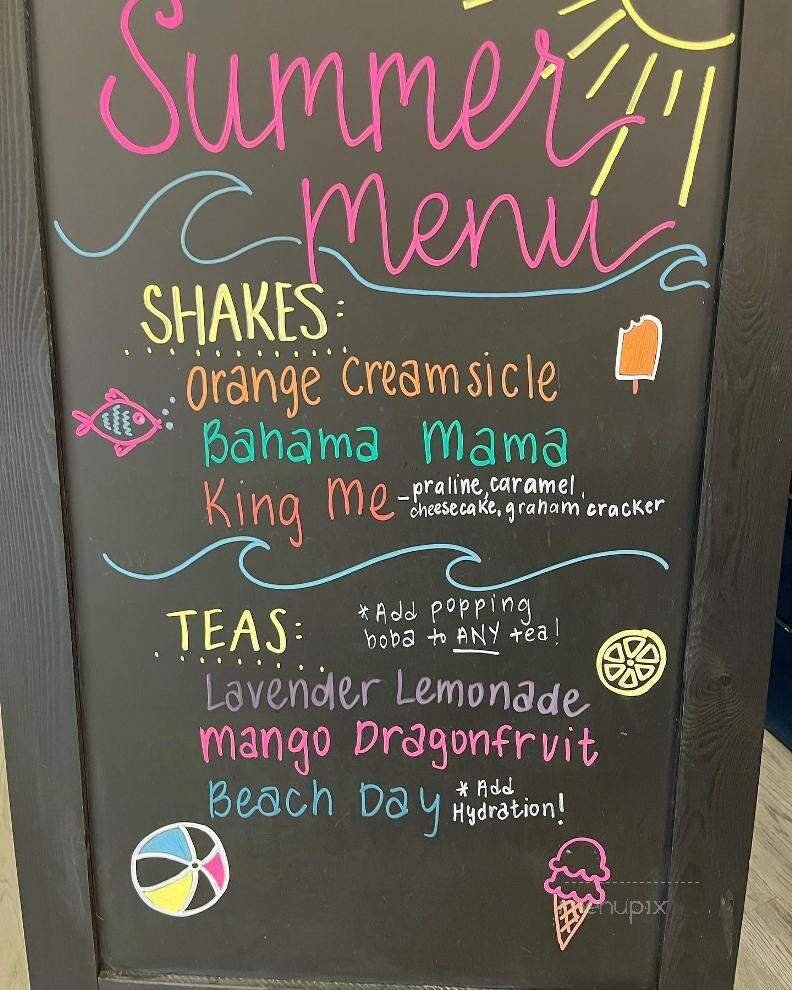 Summer
Menu
SHAKES:
Orange Creamsicle
Bahama Mama
King Me - praline, caramel,
cheesecake, graham cracker
TEAS:
*Add popping
boba to ANY tea!
Lavender Lemonade
Mango Dragonfruit
Beach Day *Add
Hydration!
menupix